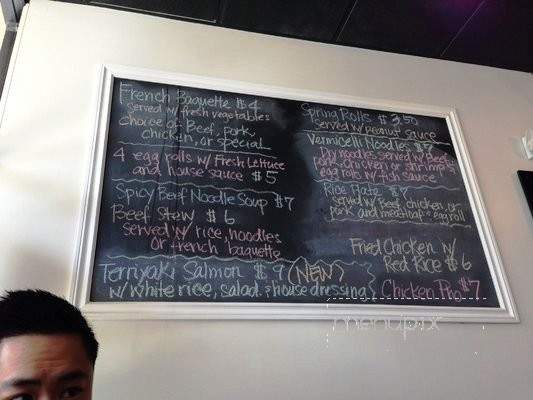 French Baguette $4
served w/ fresh vegetables
choice of Beef, pork,
chicken, or special
4 egg rolls w/ Fresh Lettuce
and house sauce $5
Spicy Beef Noodle Soup $7
Beef Stew $6
served w/ rice, noodles
or french baguette
Terriyaki Salmon $9 (NEW)
w/ white rice, salad & house dressing
Spring Rolls $3.50
served w/ peanut sauce
Vermicelli Noodles $7
Dry noodles served w/ Beef,
pork, chicken or shrimp &
egg rolls w/ fish sauce
Rice Plate $7
served w/ Beef, chicken, or
pork and meatloaf & egg roll
Fried Chicken w/
Red Rice $6
Chicken Pho $7
menupix